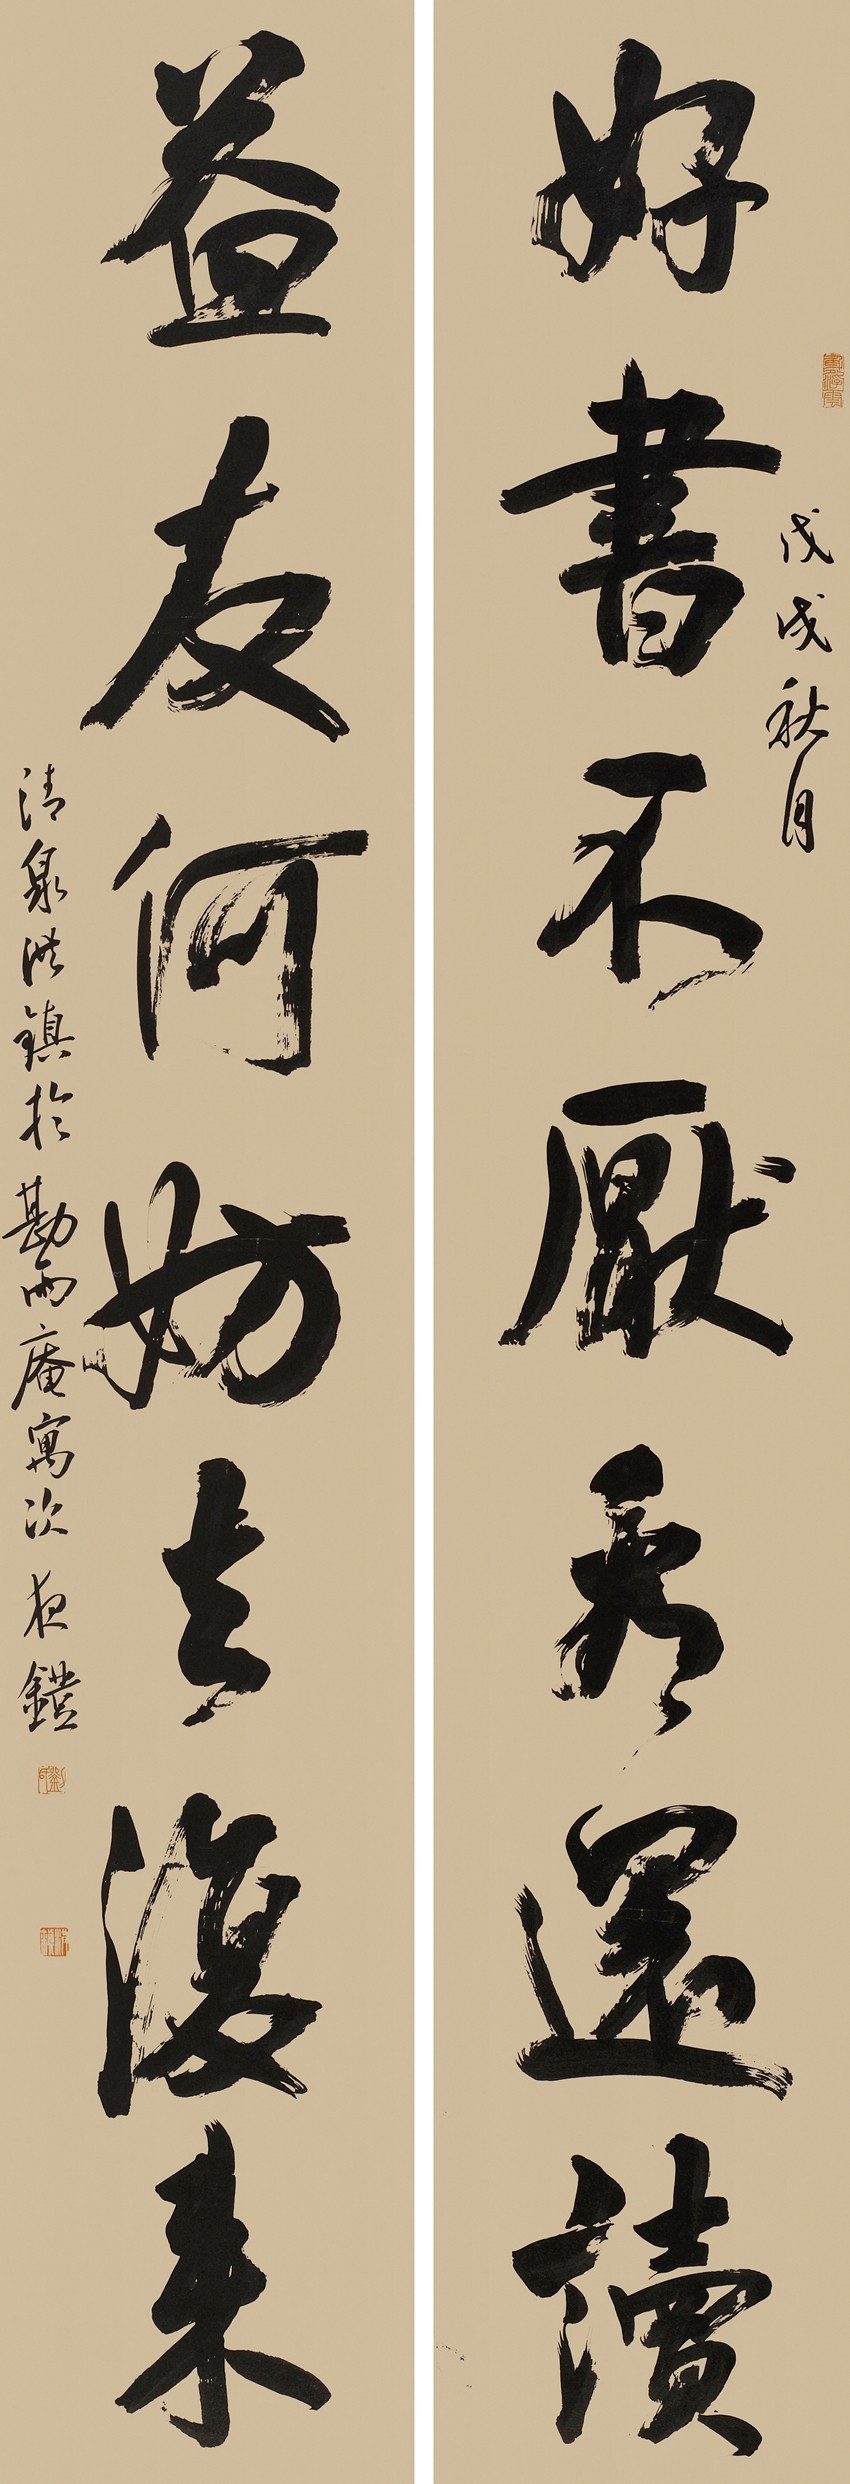 戊戌秋月
好書不厭看還讀
益友何妨去復來
清泉洪鎮於勘雨庵寓次夜鐙